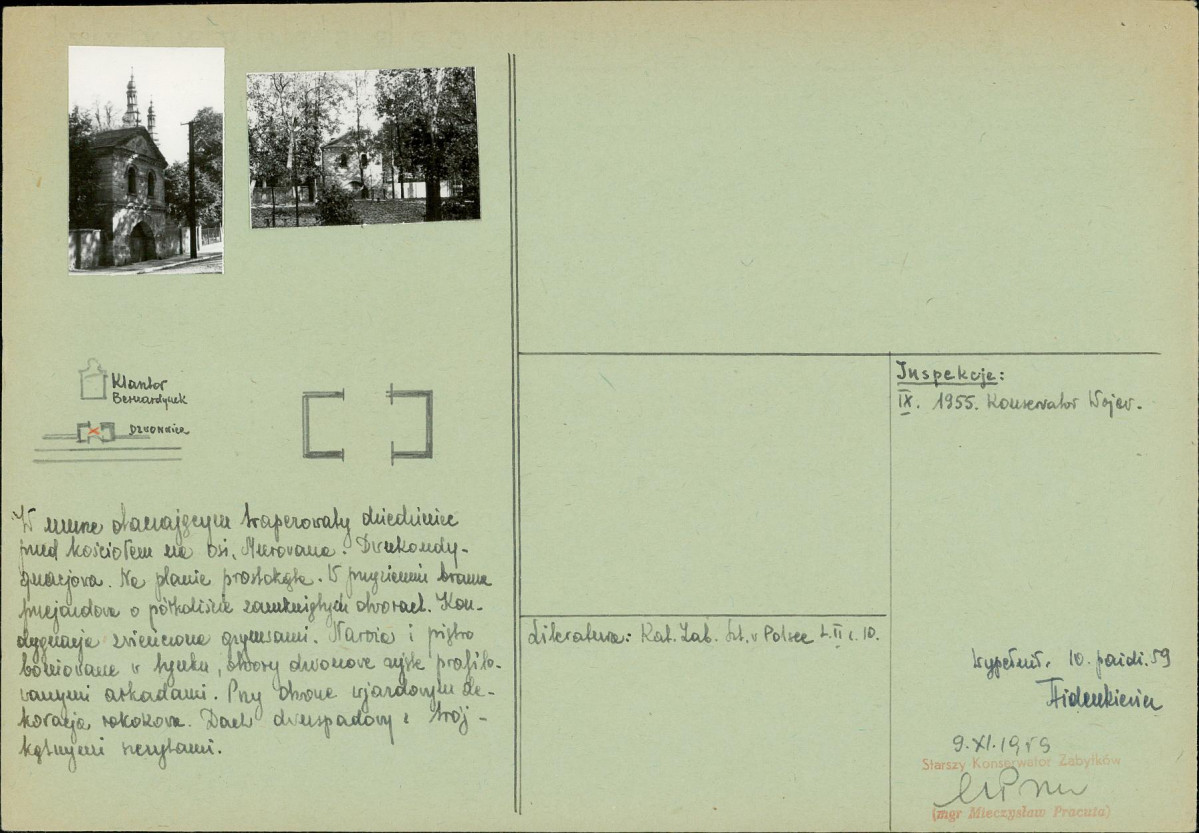 Klasztor
Bernardynek
Dzwonnica
W murze otaczającym trapezowaty dziedziniec
przed kościołem na osi. Murowana. Dwukondy-
gnacjowa. Na planie prostokąta. W przyziemiu brama
przejazdowa o półkoliście zamkniętych otworach. Kon-
dygnacje zwieńczone gzymsami. Naroża i piętro
boniowane w tynku, otwory dzwonowe ujęte profilo-
wanymi arkadami. Przy otworze wjazdowym de-
koracja rokokowa. Dach dwuspadowy z trój-
kątnymi szczytami.
Inspekcje:
IX. 1955. Konserwator Wojew.
Literatura: Kat. Zab. Szt. w Polsce t. II s. 10.
Wypełnił. 10. paźdź. 59
9.XI.1959
Starszy Konserwator Zabytków
(mgr Mieczysław Pracuta)